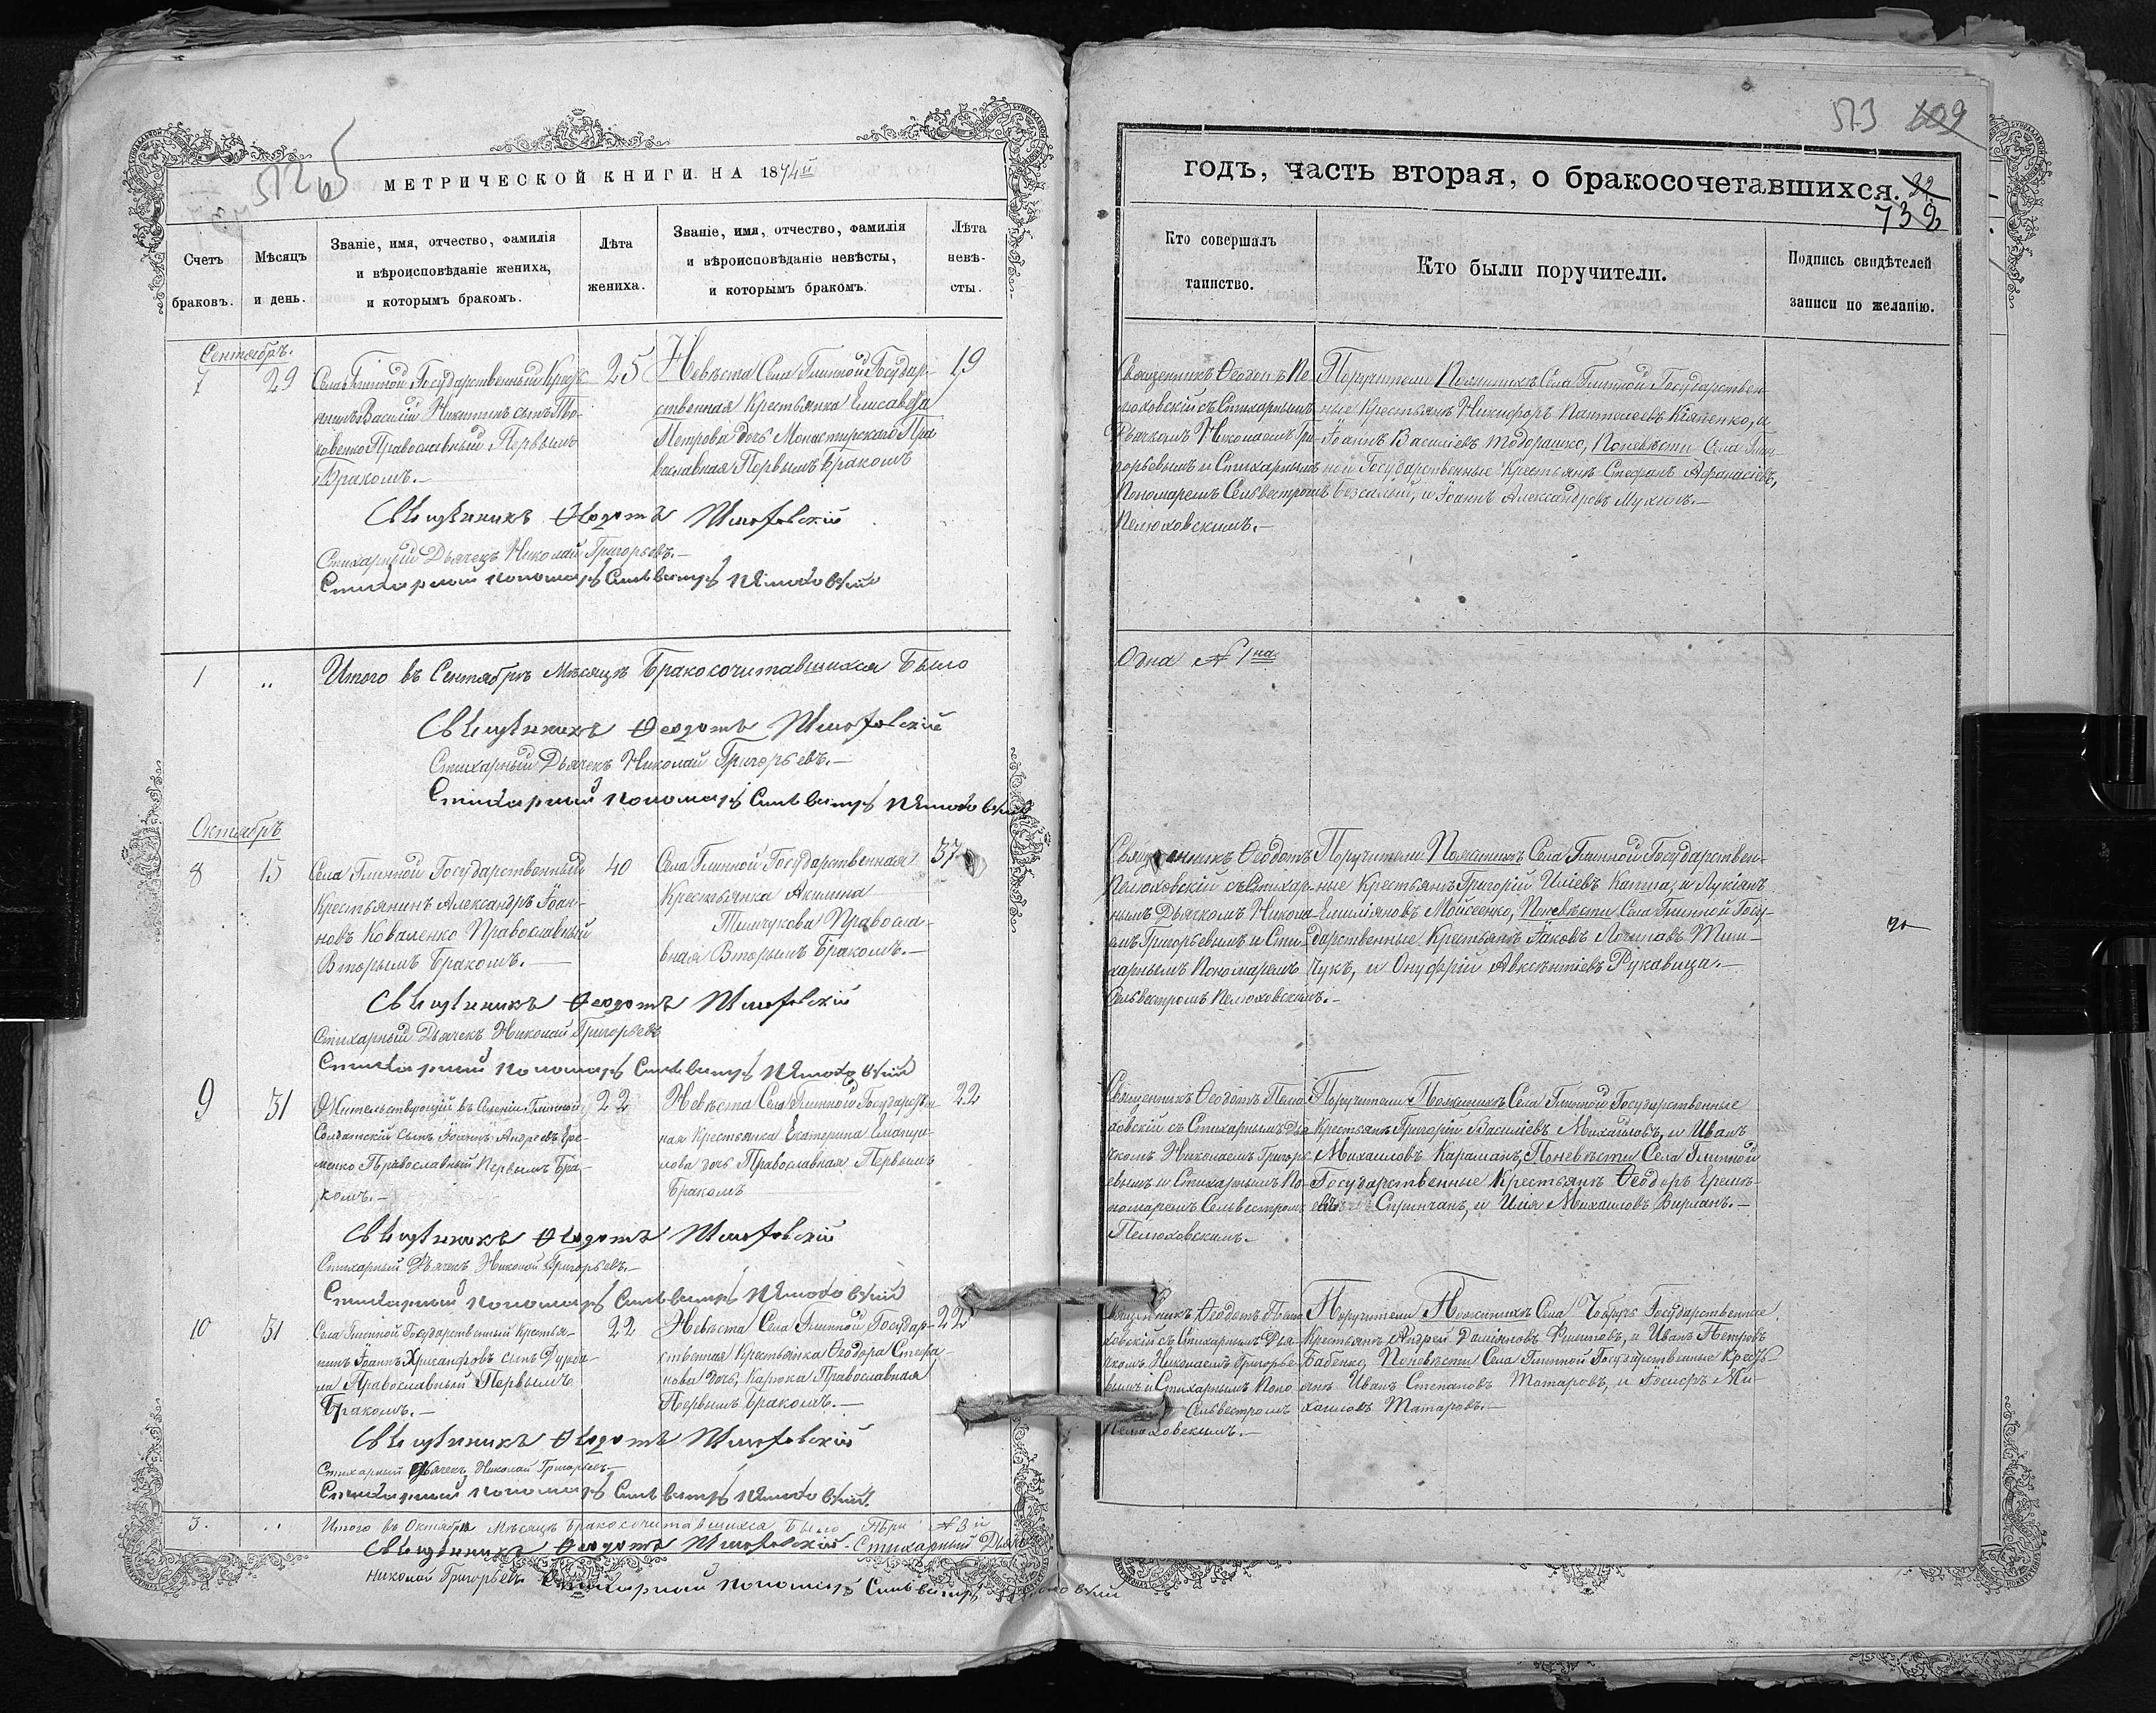 512
65
МЕТРИЧЕСКОЙ КНИГИ НА 1874й
Счетъ браковъ.
Мѣсяцъ и день.
Званіе, имя, отчество, фамилія
и вѣроисповѣданіе жениха,
и которымъ бракомъ.
Лѣта
жениха.
Званіе, имя, отчество, фамилія
и вѣроисповѣданіе невѣсты,
и которымъ бракомъ.
Лѣта
невѣ-
сты.
Сентябрь.
7
29
Села Глинной Государственный Кресть-
янинъ Василій Никитинъ сынъ
Православный Первымъ
Бракомъ.—
25
Невѣста Села Глинной Государ-
ственная Крестьянка Елисавета
Петрова дочь Монастирскаго Пра
вославная Первымъ бракомъ
19
Священникъ Ѳеодотъ Пелюховскій
Стихарный Дьячекъ Николай Григорьевъ.—
Стихарный пономарь Сильвестръ Пелюховскій
1
Итого въ Сентябрѣ Мѣсяцѣ Бракосочитавшихся Было
Священникъ Ѳеодотъ Пелюховскій
Стихарный Дьячекъ Николай Григорьевъ.—
Стихарный пономарь Сильвестръ Пелюховскій
Октябрь
8
15
Села Глинной Государственный
Крестьянинъ Александръ Іоан-
новъ Коваленко Православный
Вторымъ Бракомъ.—
40
Села Глинной Государственная
Крестьянка Акилина
Тимчукова Правосла-
вная Вторымъ Бракомъ.—
37
Священникъ Ѳеодотъ Пелюховскій
Стихарный Дьячекъ Николай Григорьевъ
Стихарный пономарь Сильвестръ Пелюховскій
9
31
Жительствующій въ Селеніи Глинной
Солдатскій сынъ Іоаннъ Андреевъ Ере-
менко Православный Первымъ Бра-
комъ.—
22
Невѣста Села Глинной Государствен
ная Крестьянка Екатерина
дочь Православная Первымъ
Бракомъ
22
Священникъ Ѳеодотъ Пелюховскій
Стихарный Дьячекъ Николай Григорьевъ.—
Стихарный пономарь Сильвестръ Пелюховскій
10
31
Села Глинной Государственный Крестья-
нинъ Іоаннъ Хрисанфовъ сынъ
Православный Первымъ
Бракомъ.—
22
Невѣста Села Глинной Государ-
ственная Крестьянка Ѳеодора Стефа-
нова дочь, Карпока Православная
Первымъ Бракомъ.—
22
Священникъ Ѳеодотъ Пелюховскій
Стихарный Дьячекъ Николай Григорьевъ—
Стихарный пономарь Сильвестръ Пелюховскій.
3.
Итого въ Октябрѣ Мѣсяцѣ бракосочитавшихся Было Три № 3й
Священникъ Ѳеодотъ Пелюховскій. Стихарный Дьячекъ
Николай Григорьевъ Стихарный пономарь Сильвестръ Пелюховскій
513 609
годъ, часть вторая, о бракосочетавшихся.
732
Кто совершалъ
таинство.
Кто были поручители.
Подпись свидѣтелей
записи по желанію.
Священникъ Ѳеодотъ Пе
люховскій съ Стихарнымъ
Дьячкомъ Николаемъ Гри-
горьевымъ и Стихарнымъ
Пономаремъ Сельвестромъ
Пелюховскимъ.—
Поручители По женихѣ Села Глинной Государствен
ные Крестьяне Никифоръ Пантелеевъ Кияненко, и
Іоаннъ Василіевъ Тодорашко, По невѣсти Села Глин-
ной Государственные Крестьяне Стефанъ Афанасіевъ
и Іоаннъ Александровъ Мухинъ.—
Одна № 1на
Священникъ Ѳеодотъ
Пелюховскій съ Стихар-
нымъ Дьячкомъ Никола-
емъ Григорьевымъ и Сти-
харнымъ Пономаремъ
Сельвестромъ Пелюховскимъ.—
Поручители По женихѣ Села Глинной Государствен-
ные Крестьяне Григорій Иліевъ Капша, и Лукіанъ
Емиліяновъ Мойсеенко, По невѣсти Села Глинной Госу-
дарственные Крестьяне Іаковъ Логиновъ Тим-
чукъ, и Онуфрій Авксентіевъ Рукавица.—
Священникъ Ѳеодотъ Пелю
ховскій съ Стихарнымъ Дья
чкомъ Николаемъ Григорь
евымъ и Стихарнымъ По-
номаремъ Сельвестромъ
Пелюховскимъ.—
Поручители По женихѣ Села Глинной Государственные
Крестьяне Григорій Василіевъ Михайловъ, и Иванъ
Михаиловъ Караманъ, По невѣсти Села Глинной
Государственные Крестьяне Ѳеодоръ Ереме-
евъ Стринганъ, и Илія Михаиловъ Вирланъ.—
Священникъ Ѳеодотъ Пелю
ховскій съ Стихарнымъ Дья
чкомъ Николаемъ Григорье
вымъ и Стихарнымъ Поно
Сельвестромъ
Пелюховскимъ.—
Поручители По женихѣ Села Чобручъ Государственные
Крестьяне Андрей Даміановъ Филиповъ, и Иванъ Петровъ
Бабенко, По невѣсти Села Глинной Государственные Кресть
яне Иванъ Степановъ Татаровъ, и Іосифъ Ми-
хаиловъ Татаровъ.—